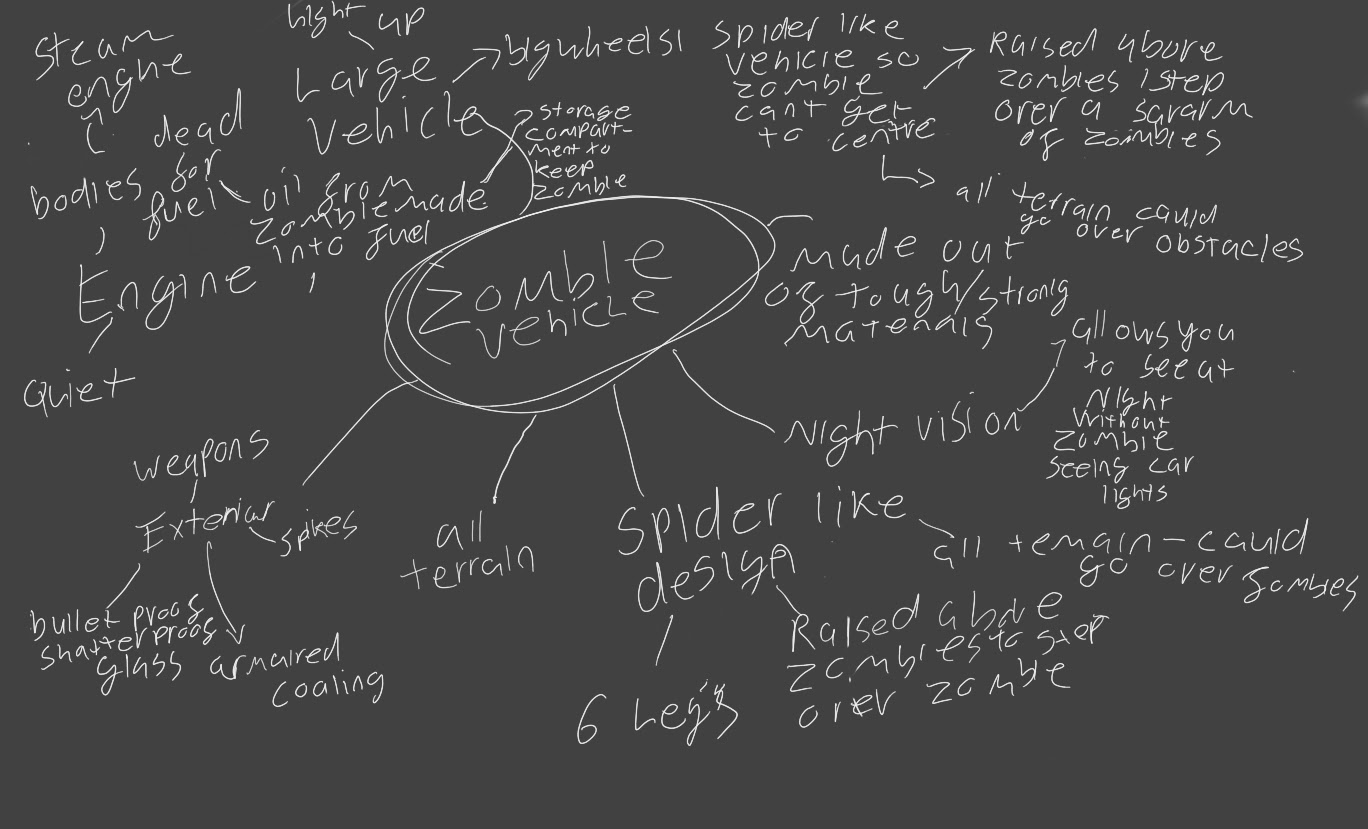 steam
engne
dead
bodies for
fuel
Engine
Quiet
hight up
Large
Vehicle
big wheels!
storage
compart-
ment to
keep
zomble
oil from
zomble made
into fuel
Spider like
vehicle so
zomble
cant get
to centre
Raised above
zombles 1step
over a sqrarm
of zombles
all terrain could
go over obstacles
Zomble
vehicle
made out
of tough/strong
materials
Night vision
allows you
to see at
Night
without
zomble
seeing car
lights
weapons
Exterior
spikes
bullet proof
shatter proof
glass
armaired
coating
all
terrain
Spider like
design
6 Legs
all terrain - could
go over zombies
Raised above
zombies to step
over zomble